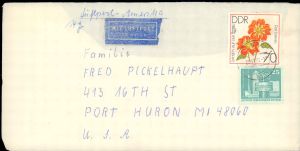 Luftpost-Amerika
MIT LUFTPOST
DDR
70
25
Familie
FRED PICKELHAUPT
413 16TH ST
PORT HURON MI 48060
U.S.A